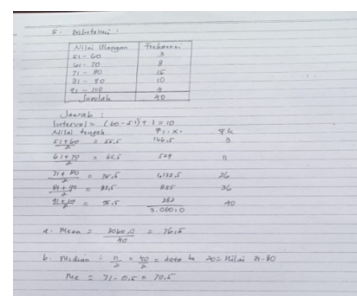 5. Diketahui :
Nilai Ulangan Frekuensi
51 - 60 3
61 - 70 8
71 - 80 15
81 - 90 10
91 - 100 4
Jumlah 40
Jawab :
Interval = (60 - 51) + 1 = 10
Nilai tengah Fi . Xi Fk
51+60/2 = 55,5 166,5 3
61+70/2 = 65,5 524 11
= 75,5 1.132,5 26
= 85,5 855 36
= 95,5 382 40
3.060,0
a. Mean = 3060,0/40 = 76,5
b. Median = n/2 = 40/2 = data ke 20 = Nilai 71-80
Me = 71 - 0,5 = 70,5